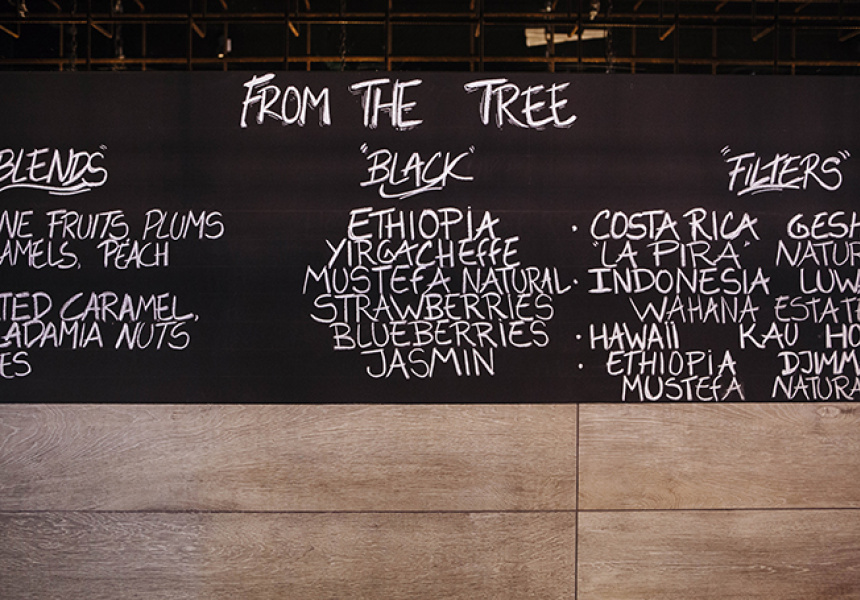 FROM THE TREE
BLENDS"
NE FRUITS, PLUMS
AMELS, PEACH
TED CARAMEL,
ADAMIA NUTS
ES
"BLACK"
ETHIOPIA
YIRGACHEFFE
MUSTEFA NATURAL
STRAWBERRIES
BLUEBERRIES
JASMIN
"FILTERS"
· COSTA RICA GESH
"LA PIRA" NATUR
· INDONESIA LUW
WAHANA ESTATE
· HAWAII KAU HO
· ETHIOPIA DJIMM
MUSTEFA NATURA